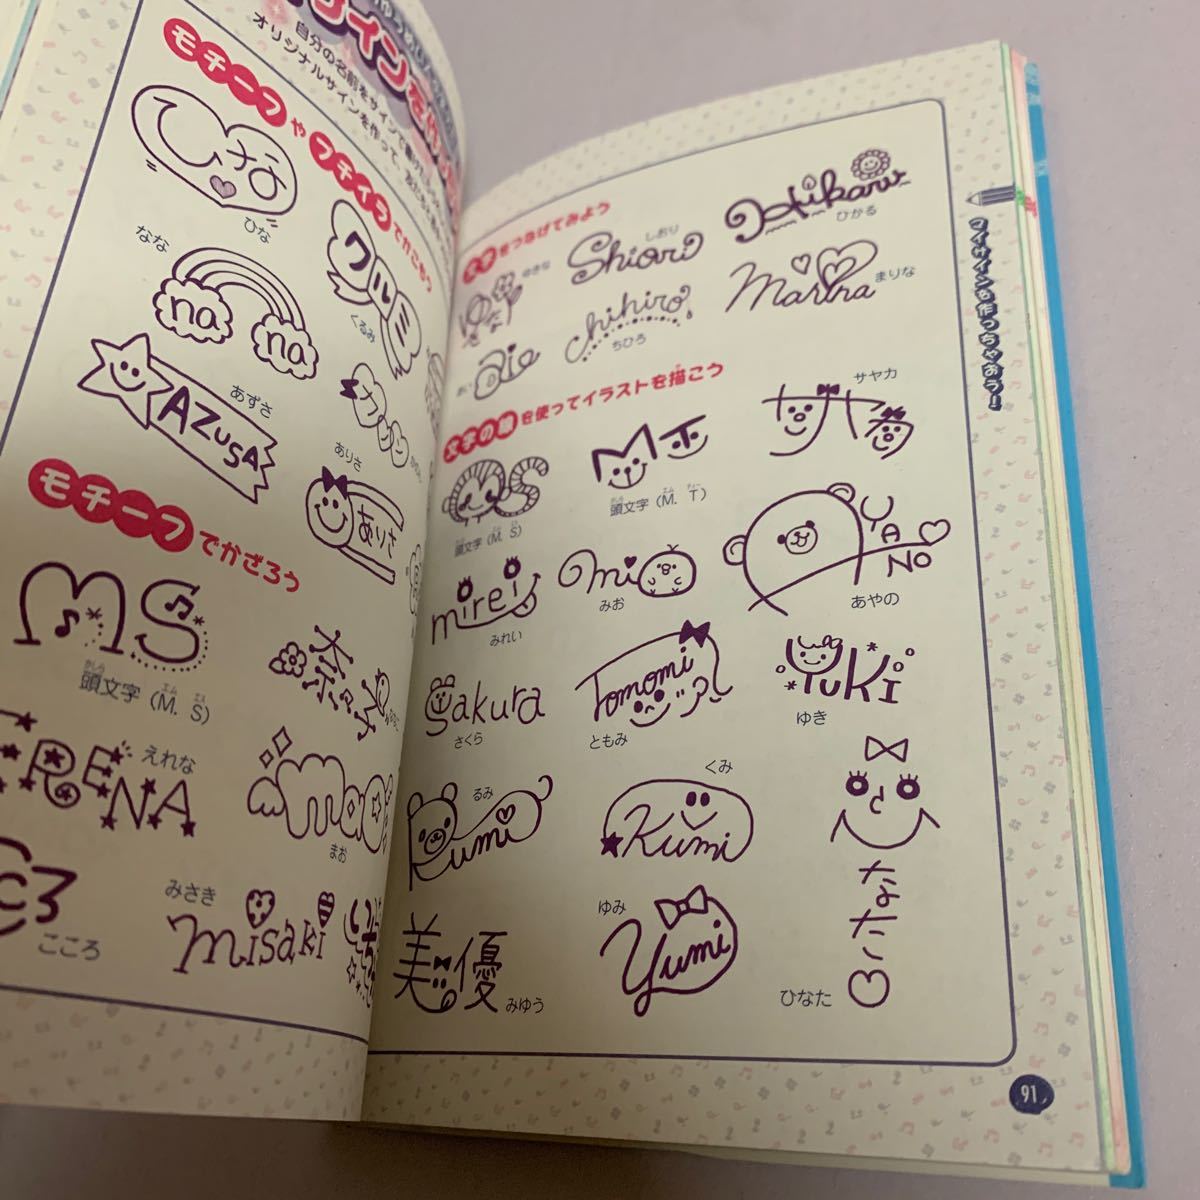 自分の名前をサインで書けたら
オリジナルサインを作って、
モチーフやプチイラでかこもう
ひな
ひな
なな
na
na
クルミ
くるみ
あずさ
AZUSA
ありさ
ありさ
モチーフでかざろう
MS
頭文字(M. S)
奈々子
えれな
RENA
mao
まお
こころ
みさき
misaki
文字をつなげてみよう
ゆきな
しおり
Shiori
Hikaru
ひかる
chihiro
ちひろ
Marina
まりな
文字の線を使ってイラストを描こう
MS
頭文字(M. S)
MT
頭文字(M. T)
サヤカ
mirei
みれい
mio
みお
YANO
あやの
Sakura
さくら
Tomomi
ともみ
YUKI
ゆき
るみ
Rumi
くみ
Kumi
美優
みゆう
ゆみ
Yumi
ひなた
マイサインを作っちゃおう!
91